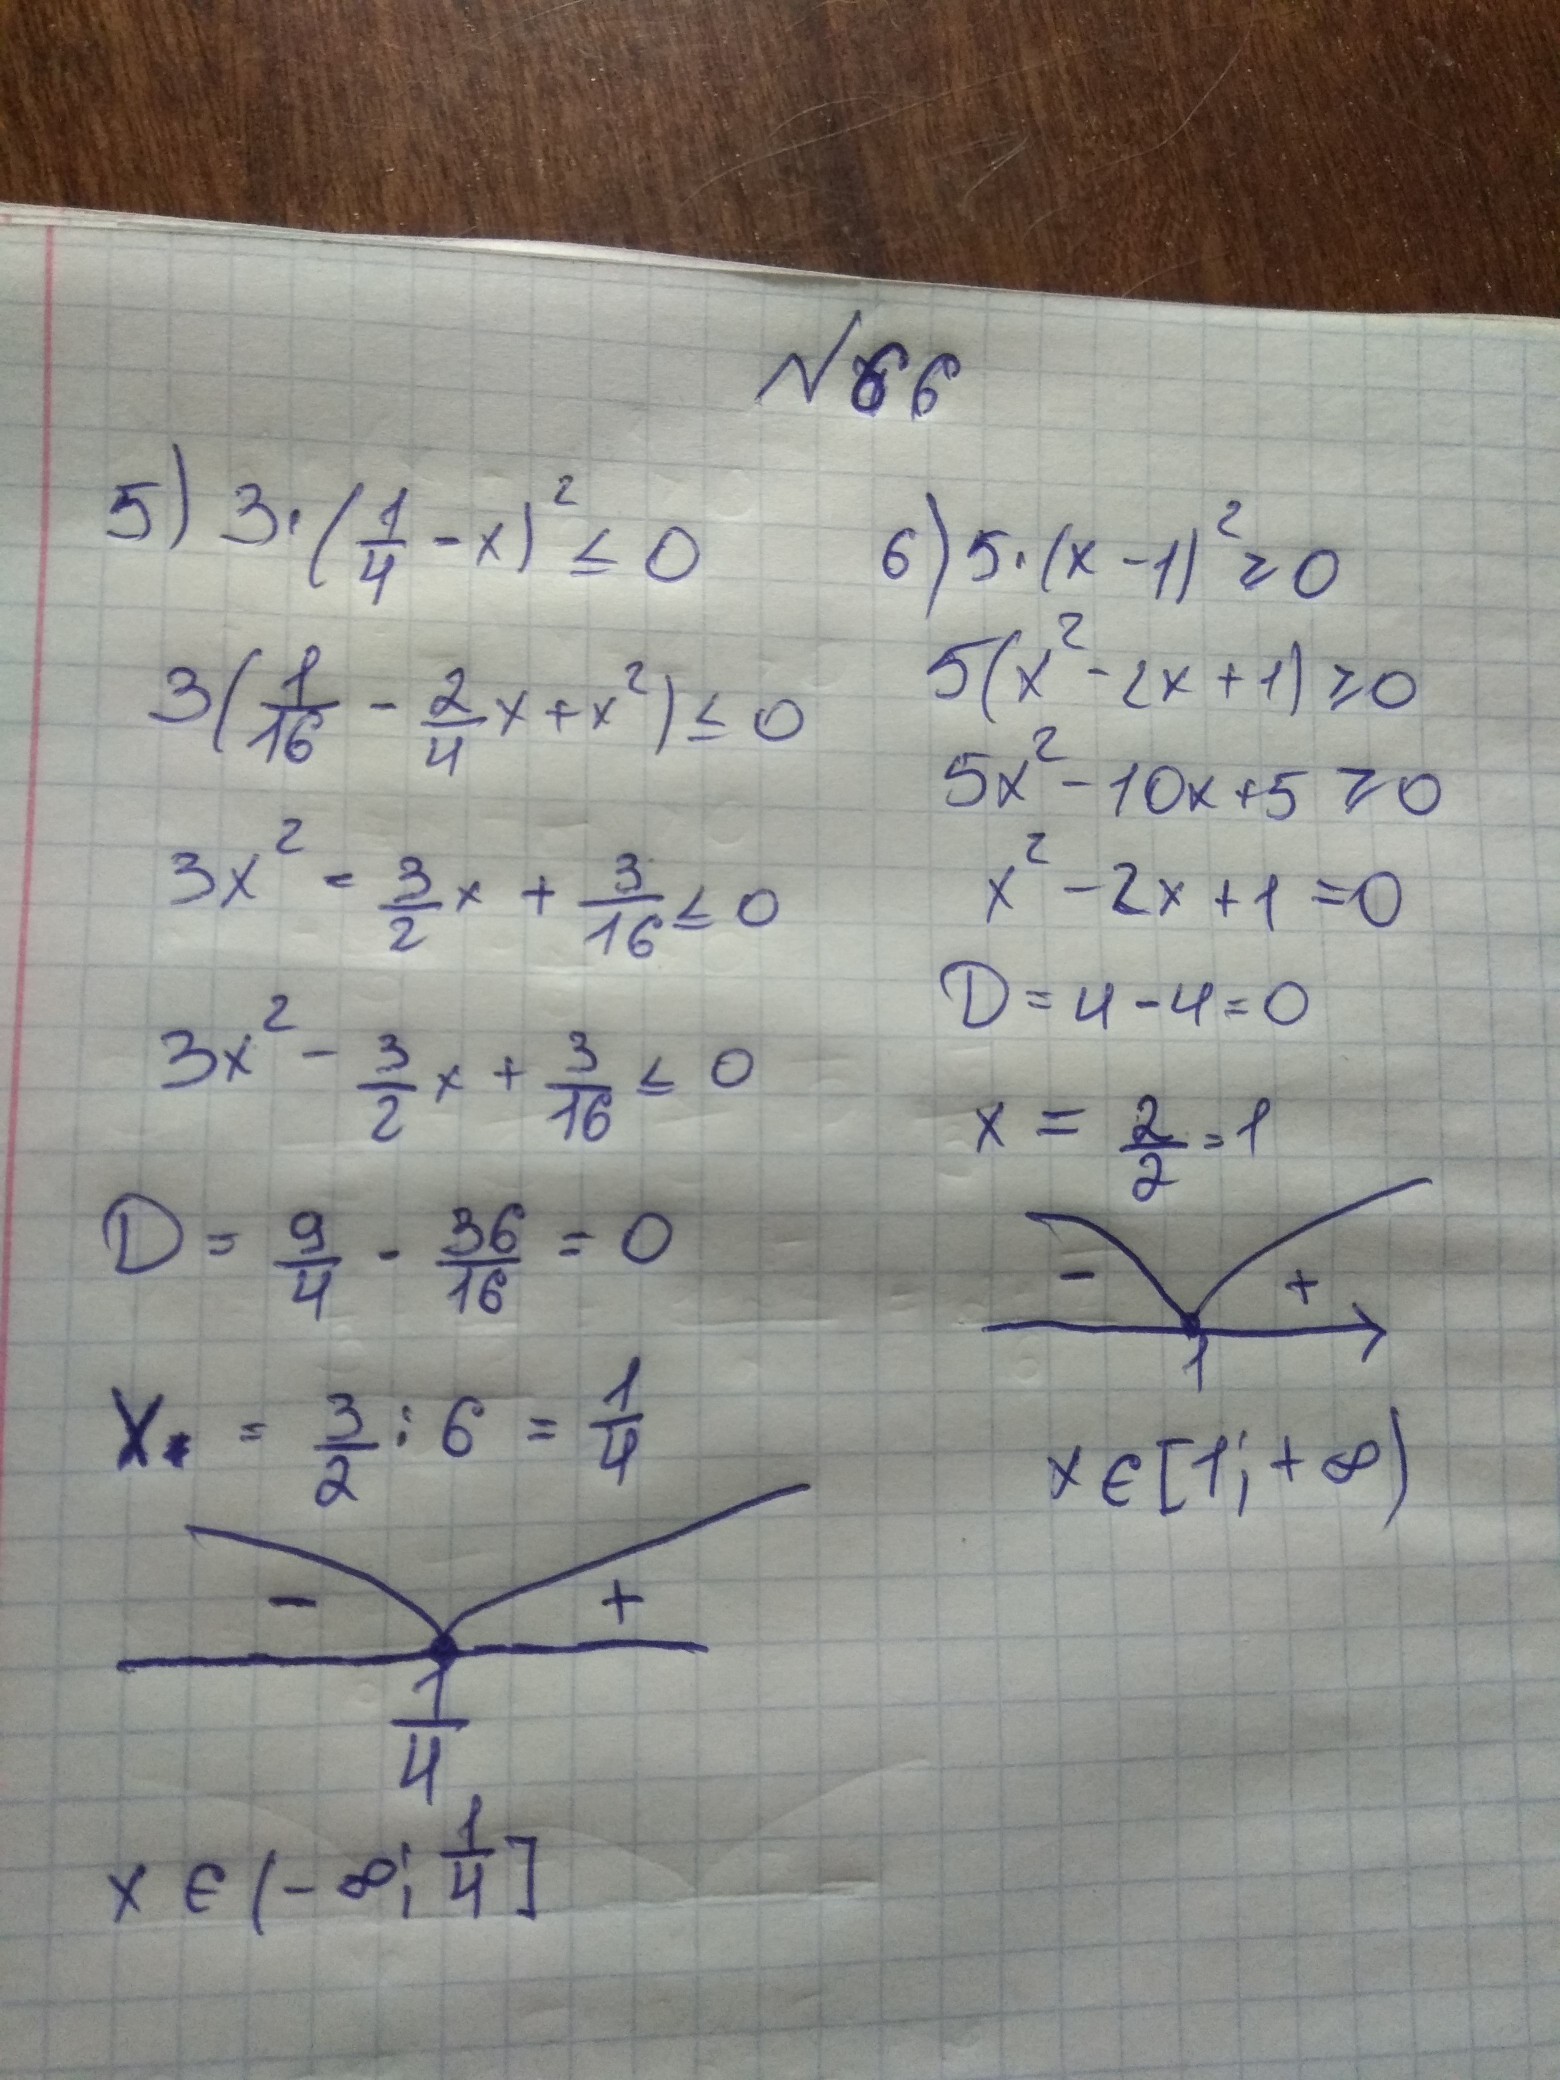 №66
5) 3·(1/4 - x)² ≤ 0
3(1/16 - 2/4 x + x²) ≤ 0
3x² - 3/2 x + 3/16 ≤ 0
3x² - 3/2 x + 3/16 ≤ 0
D = 9/4 - 36/16 = 0
x = 3/2 : 6 = 1/4
- +
1/4
x ∈ (-∞; 1/4]
6) 5·(x - 1)² ≥ 0
5(x² - 2x + 1) ≥ 0
5x² - 10x + 5 ≥ 0
x² - 2x + 1 = 0
D = 4 - 4 = 0
x = 2/2 = 1
- +
1
x ∈ [1; +∞)